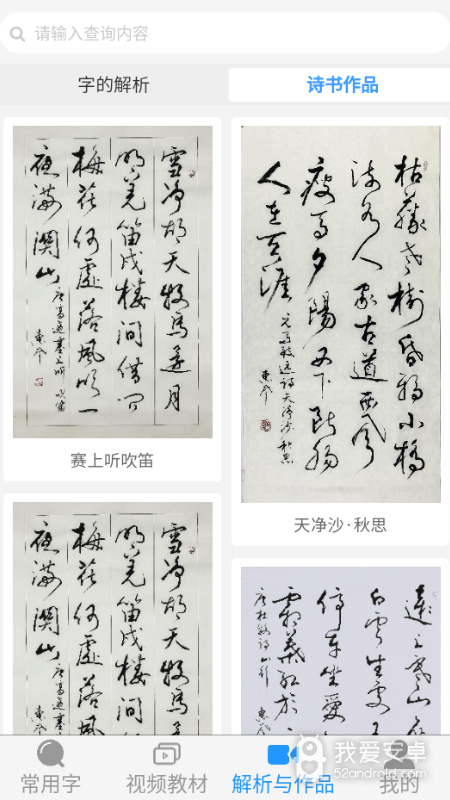 请输入查询内容
字的解析
诗书作品
雪净胡天牧马还月
明羌笛戍楼间借问
梅花何处落风吹一
夜满关山
唐高适塞上听吹笛
赛上听吹笛
枯藤老树昏鸦小桥
流水人家古道西风
瘦马夕阳西下断肠
人在天涯
元马致远词天净沙秋思
天净沙·秋思
雪净胡天牧马还月
明羌笛戍楼间借问
梅花何处落风吹一
夜满关山
远上寒山
白云生处
停车坐爱
霜叶红于
唐杜牧诗山行
常用字
视频教材
解析与作品
我的
我爱安卓
52android.com